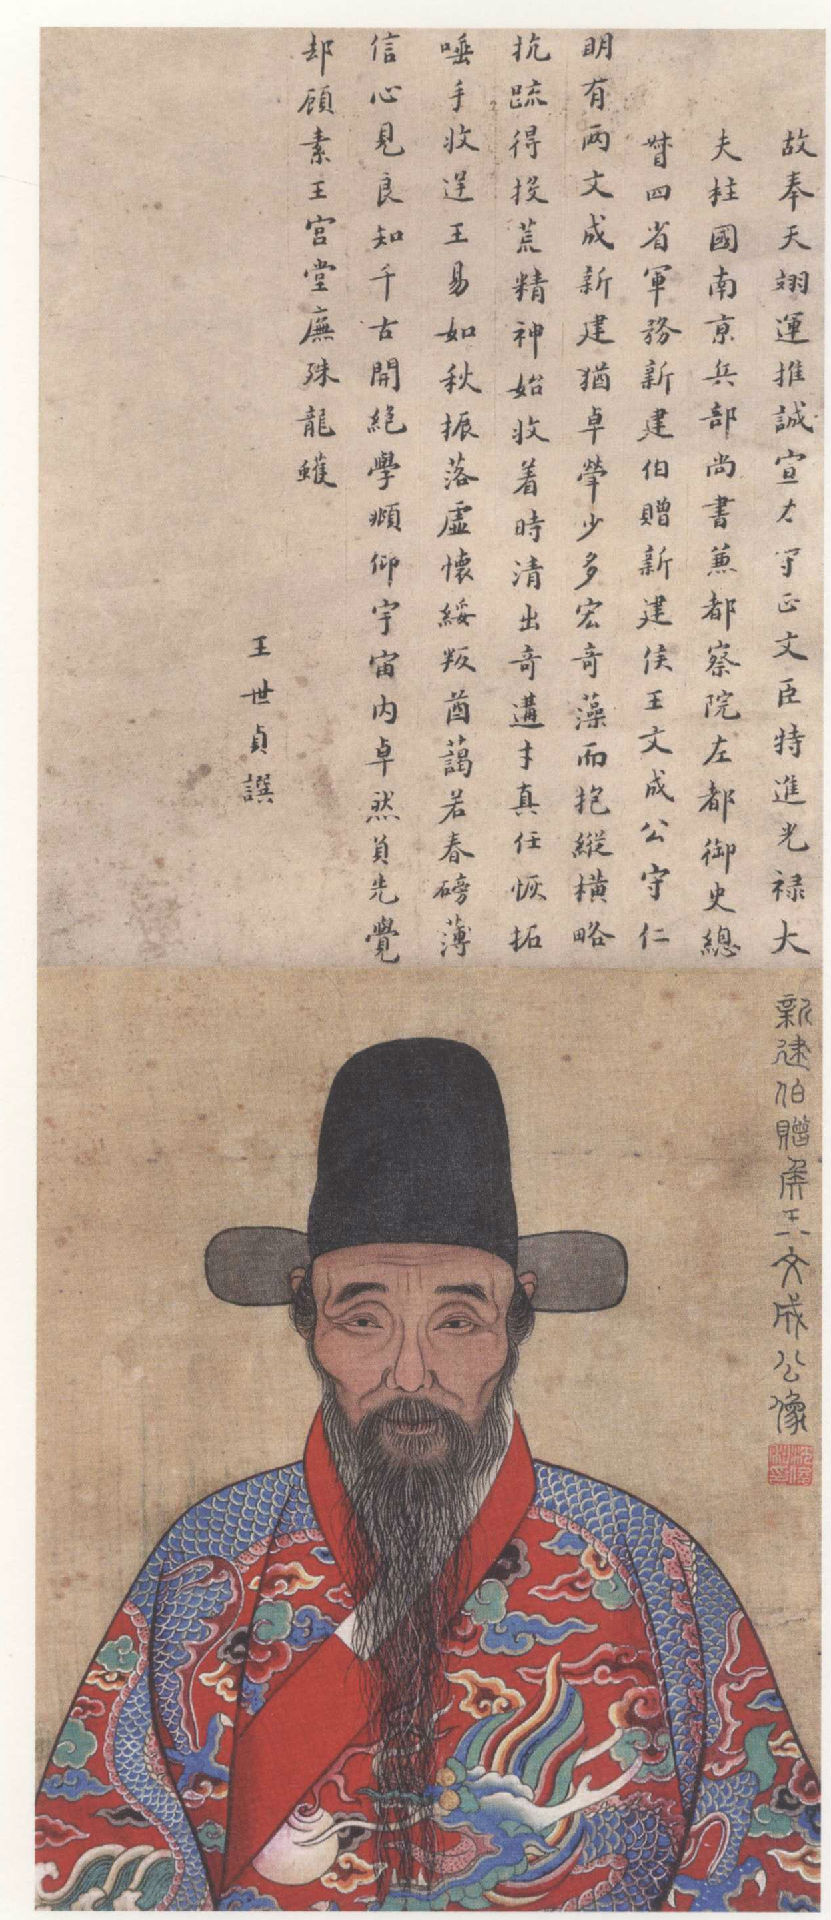 故奉天翊運推誠宣力守正文臣特進光祿大
夫柱國南京兵部尚書兼都察院左都御史總
督四省軍務新建伯贈新建侯王文成公守仁
明有兩文成新建猶卓犖少多宏奇藻而抱縱橫略
抗疏得投荒精神始收着時清出奇遘才真任恢拓
唾手收逆王易如秋振落虛懷綏叛酋藹若春磅薄
信心見良知千古開絕學頫仰宇宙內卓然負先覺
却顧素王宮堂廡殊龍蠖
王世貞譔
新建伯贈侯王文成公像